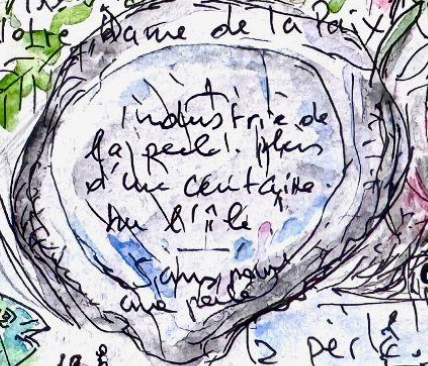 Notre Dame de la Paix
industrie de
la perle. plus
d'une centaine.
sur l'île
Sans
une perle
la perle.